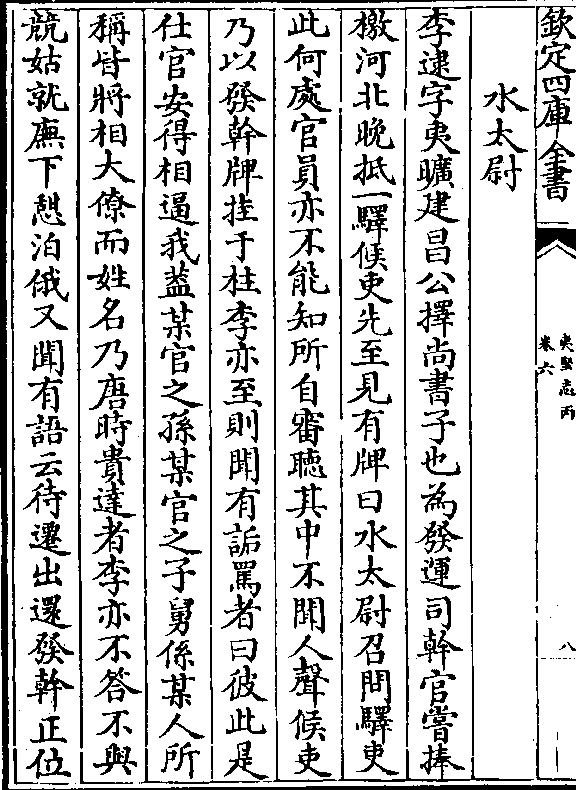 欽定四庫全書
夷堅志丙
卷六
八
水太尉
李逮字夷曠建昌公擇尚書子也為發運司幹官嘗捧
檄河北晚抵一驛候吏先至見有牌曰水太尉召問驛吏
此何處官員亦不能知所自審聽其中不聞人聲候吏
乃以發幹牌挂于柱李亦至則聞有詬罵者曰彼此是
仕官安得相逼我葢某官之孫某官之子舅係某人所
稱皆將相大僚而姓名乃唐時貴達者李亦不答不與
競姑就廡下憩泊俄又聞有語云待遷出還發幹正位